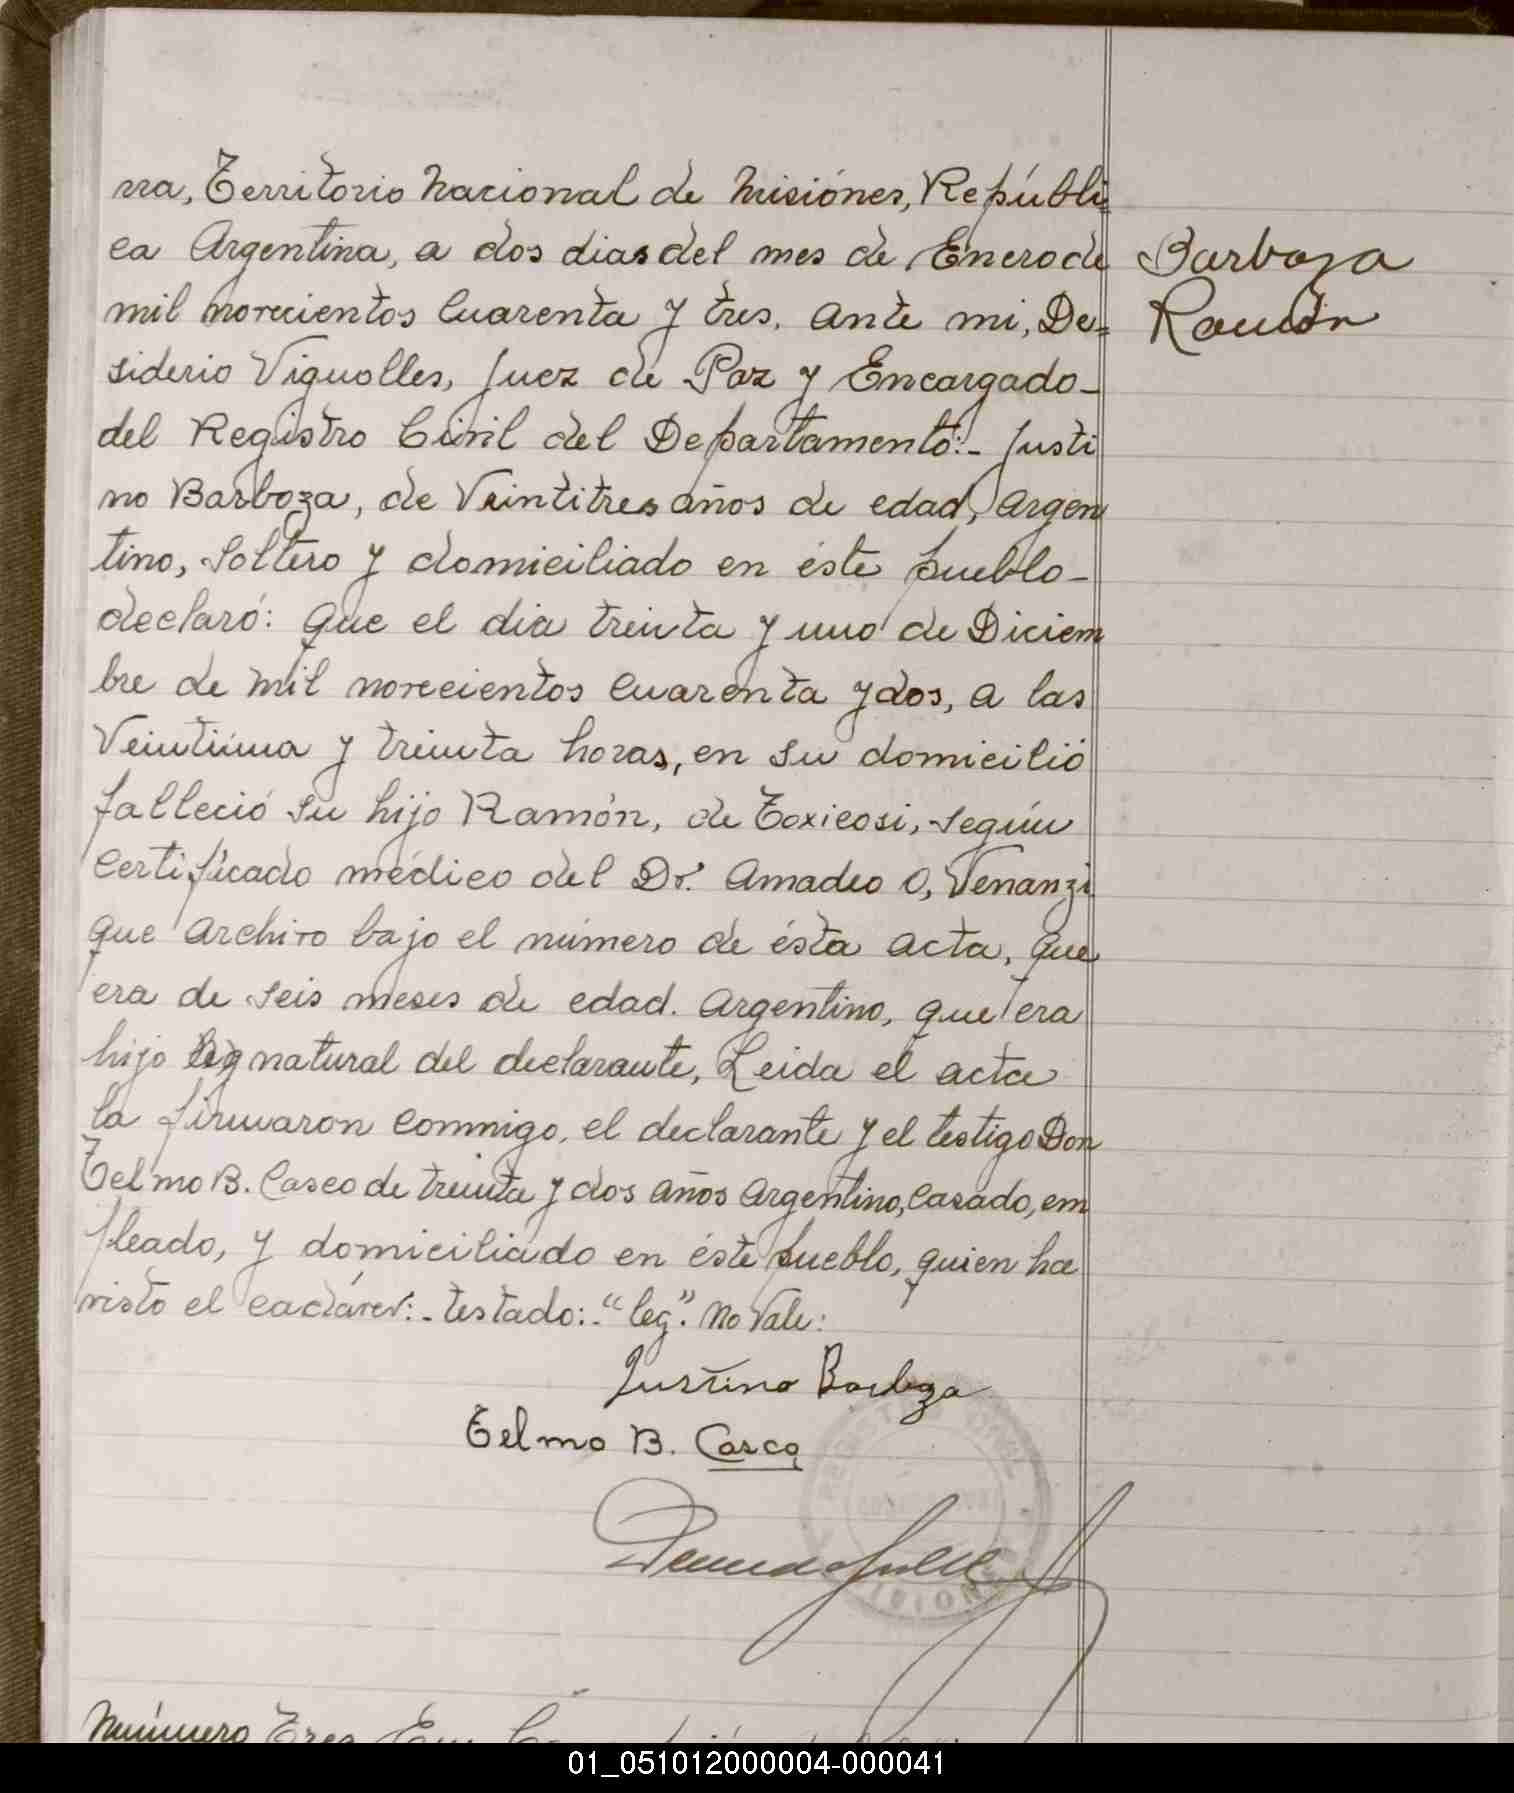 rra, Territorio Nacional de Misiónes, Repúbli=
ca Argentina, a dos dias del mes de Enero de
Barboza
mil novecientos Cuarenta y tres, ante mi, De=
Ramón
siderio Viguolles, Juez de Paz y Encargado-
del Registro Civil del Departamento:- Justi
no Barboza, de Veintitres años de edad, argen
tino, Soltero y domiciliado en éste pueblo-
declaró: Que el dia treinta y uno de Diciem
bre de mil novecientos Cuarenta y dos, a las
Veintiuna y treinta horas, en su domicilió
falleció su hijo Ramón, de Toxicosi, según
Certificado médico del Dr. Amadeo O, Venanzi
que archivo bajo el número de ésta acta, que
era de seis meses de edad. Argentino, que era
hijo leg natural del declarante, Leida el acta
la firmaron conmigo, el declarante y el testigo Don
Telmo B. Casco de treinta y dos años argentino, casado, em
pleado, y domiciliado en éste pueblo, quien ha
visto el cadáver:- testado:-"leg". No Vale:
Justino Barboza
Telmo B. Casco
Número Tres En
01_051012000004-000041